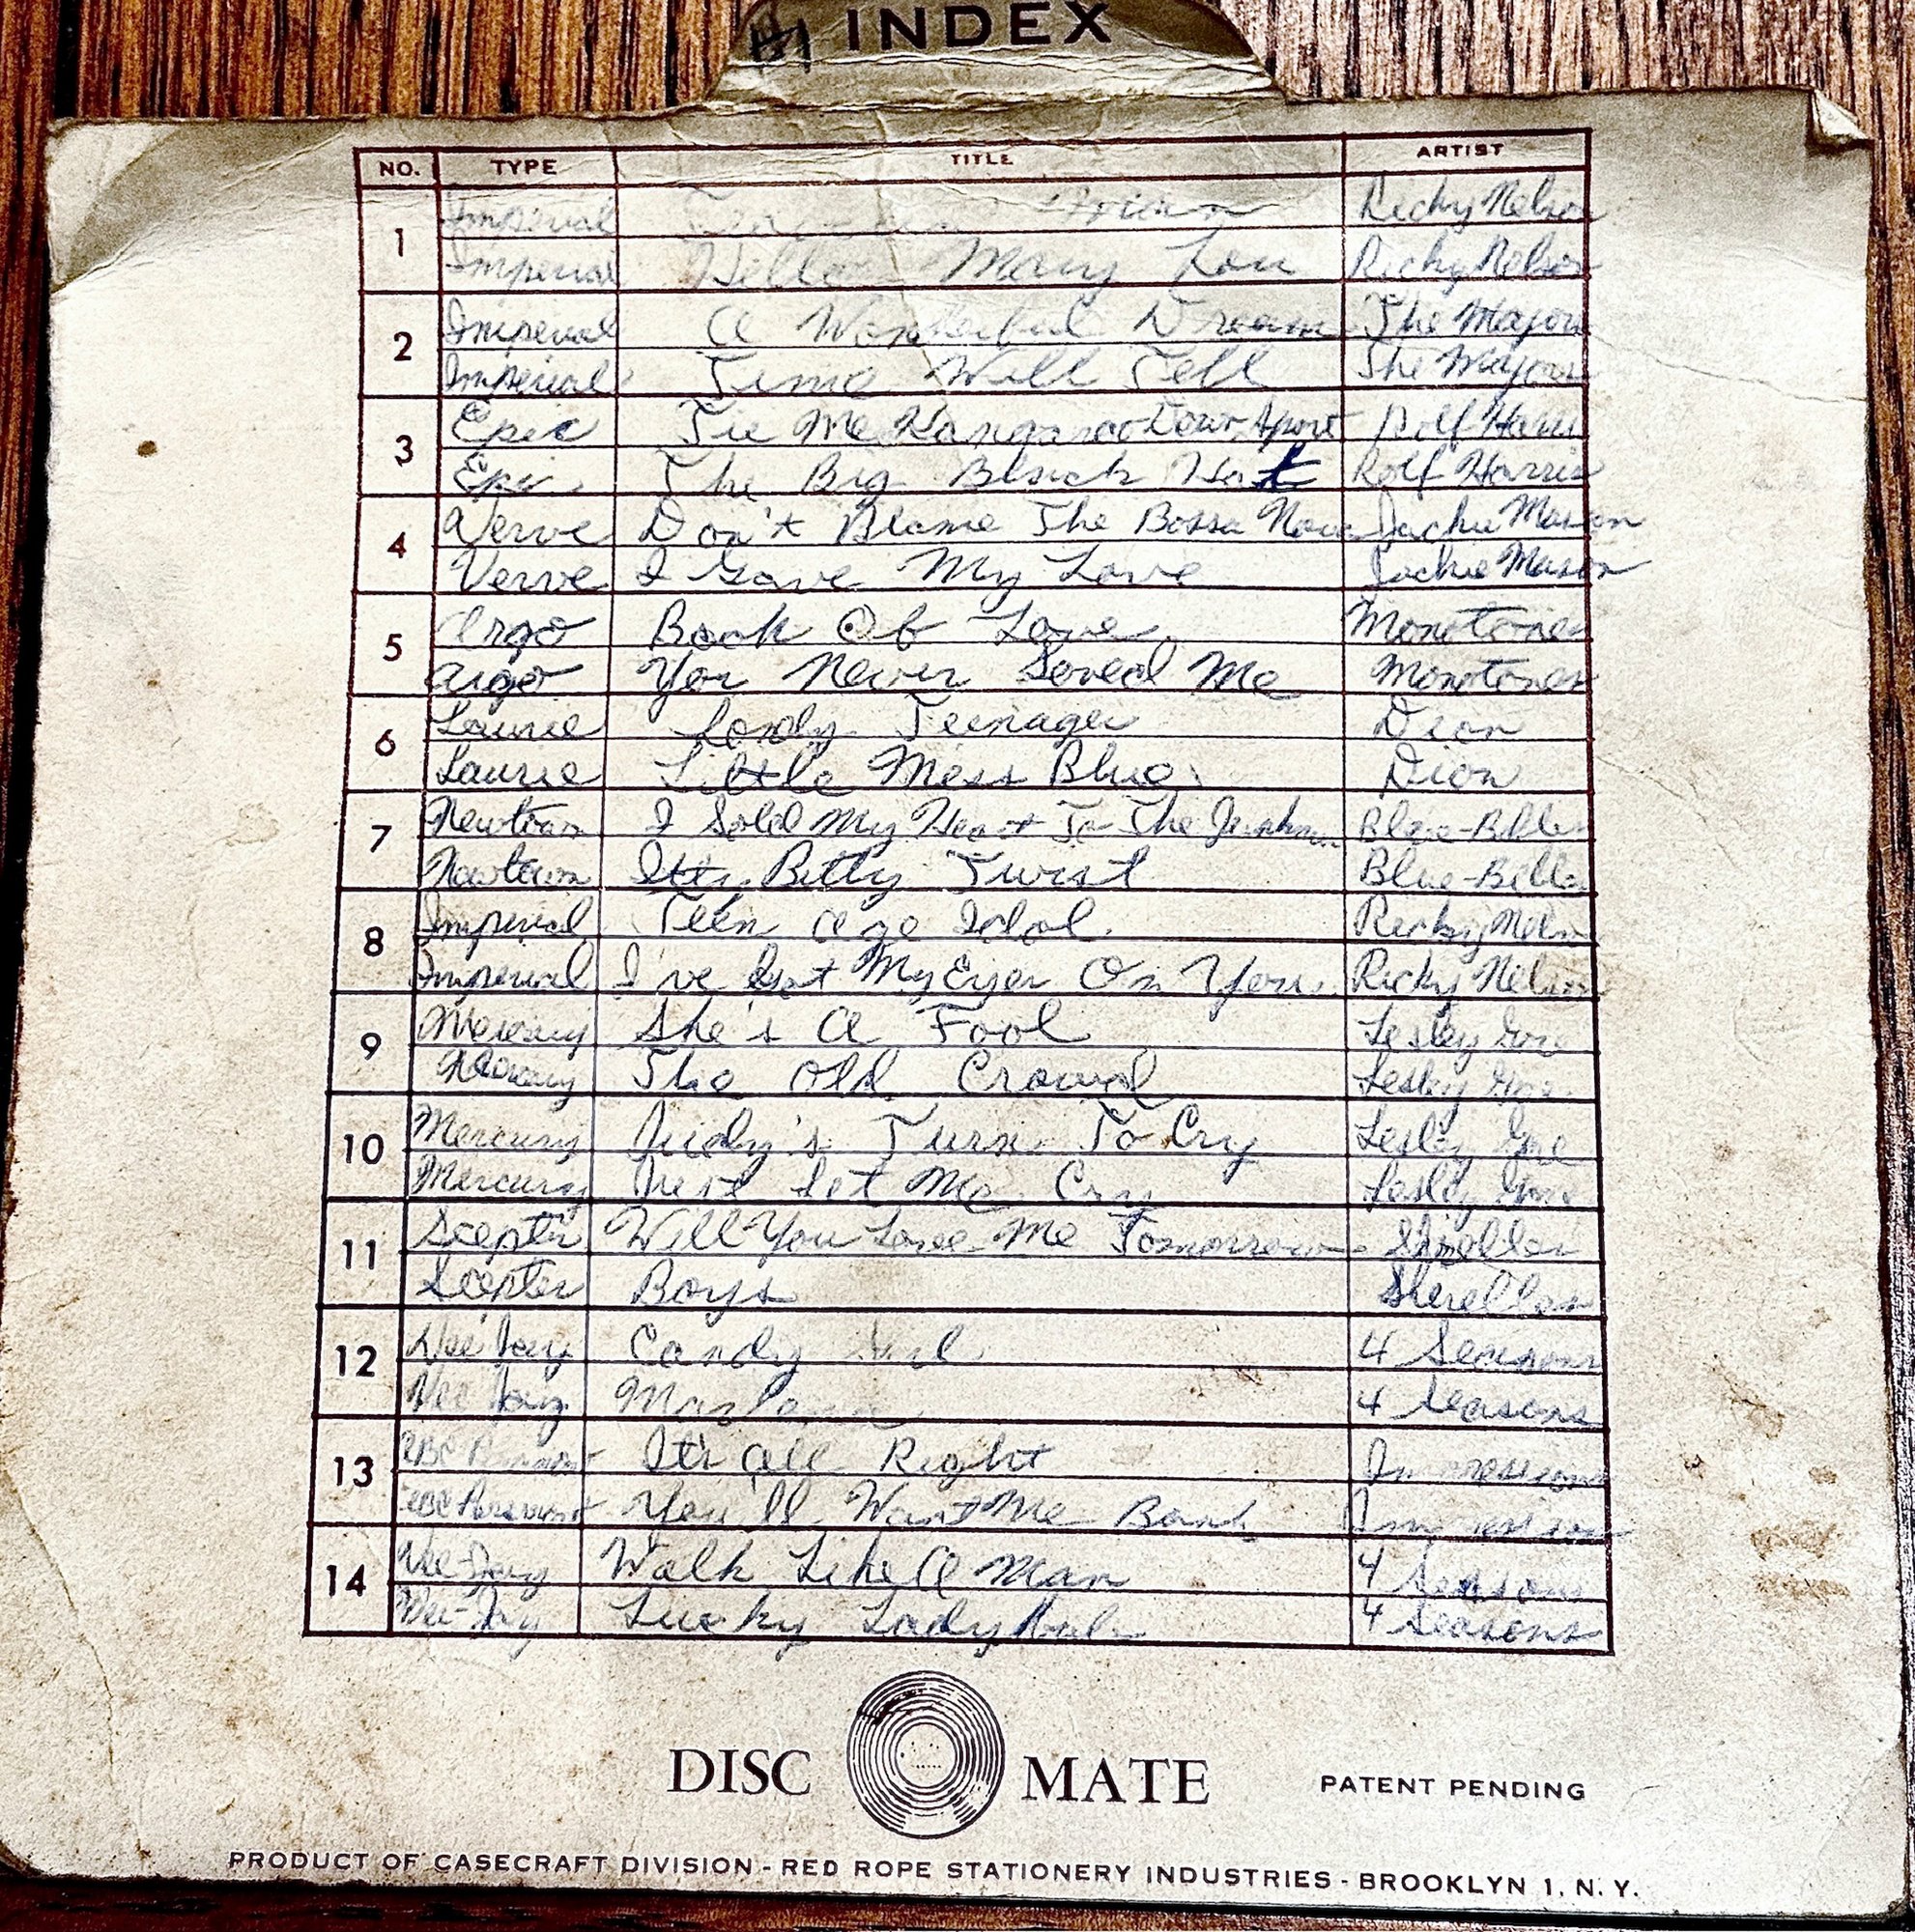 INDEX
NO. TYPE TITLE ARTIST
1 Imperial Man Ricky Nelson
Imperial Hello Mary Lou Ricky Nelson
2 Imperial A Wonderful Dream The Majors
Imperial Time Will Tell The Majors
3 Epic Tie Me Kangaroo Down Sport Rolf Harris
Epic The Big Black Hat Rolf Harris
4 Verve Don't Blame The Bossa Nova Jackie Mason
Verve I Gave My Love Jackie Mason
5 Argo Book Of Love Monotones
Argo You Never Loved Me Monotones
6 Laurie Lonely Teenager Dion
Laurie Little Miss Blue Dion
7 Newtown I Sold My Heart To The Junkman Blue-Belles
Newtown Itty Bitty Twist Blue-Belles
8 Imperial Teen Age Idol Ricky Nelson
Imperial I've Got My Eyes On You Ricky Nelson
9 Mercury She's A Fool Lesley Gore
Mercury The Old Crowd Lesley Gore
10 Mercury Judy's Turn To Cry Lesley Gore
Mercury Just Let Me Cry Lesley Gore
11 Scepter Will You Love Me Tomorrow Shirelles
Scepter Boys Sherelles
12 Vee Jay Candy Girl 4 Seasons
Vee Jay Marlena 4 Seasons
13 ABC Paramount It's All Right Impressions
ABC Paramount You'll Want Me Back Impressions
14 Vee-Jay Walk Like A Man 4 Seasons
Vee-Jay Lucky Ladybug 4 Seasons
DISC MATE PATENT PENDING
PRODUCT OF CASECRAFT DIVISION - RED ROPE STATIONERY INDUSTRIES - BROOKLYN 1, N. Y.